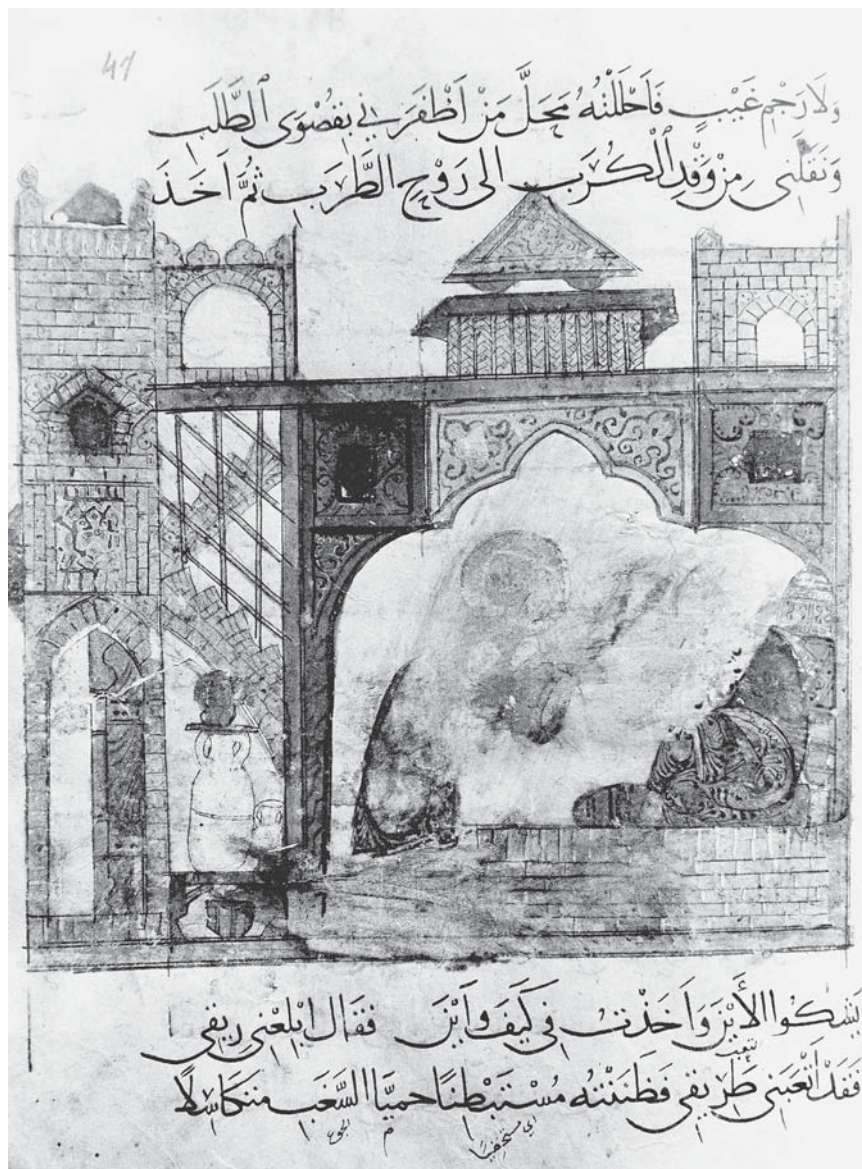 47
وَلَا رَجْمِ غَيْبٍ فَاَحْلَلْتُهُ مَحَلَّ مَنْ اَظْفَرَنِي بِقُصْوَى الطَّلَبِ
وَنَقَلَنِي مِنْ وَقْدِ الْكُرَبِ الى رَوْحِ الطَّرَبِ ثُمَّ اَخَذَ
يَشْكُوا الأَيْنَ وَاَخَذْتُ فِي كَيْفَ وَاَيْنَ فَقَالَ ابْلِعْنِي رِيقِي
لتعب
فَقَدْ اَتْعَبَنِي طَرِيقِي فَظَنَنْتُهُ مُسْتَبْطِنًا حميَّا السَّغَبِ متكَاسِلًا
اي مستخفيا الجوع